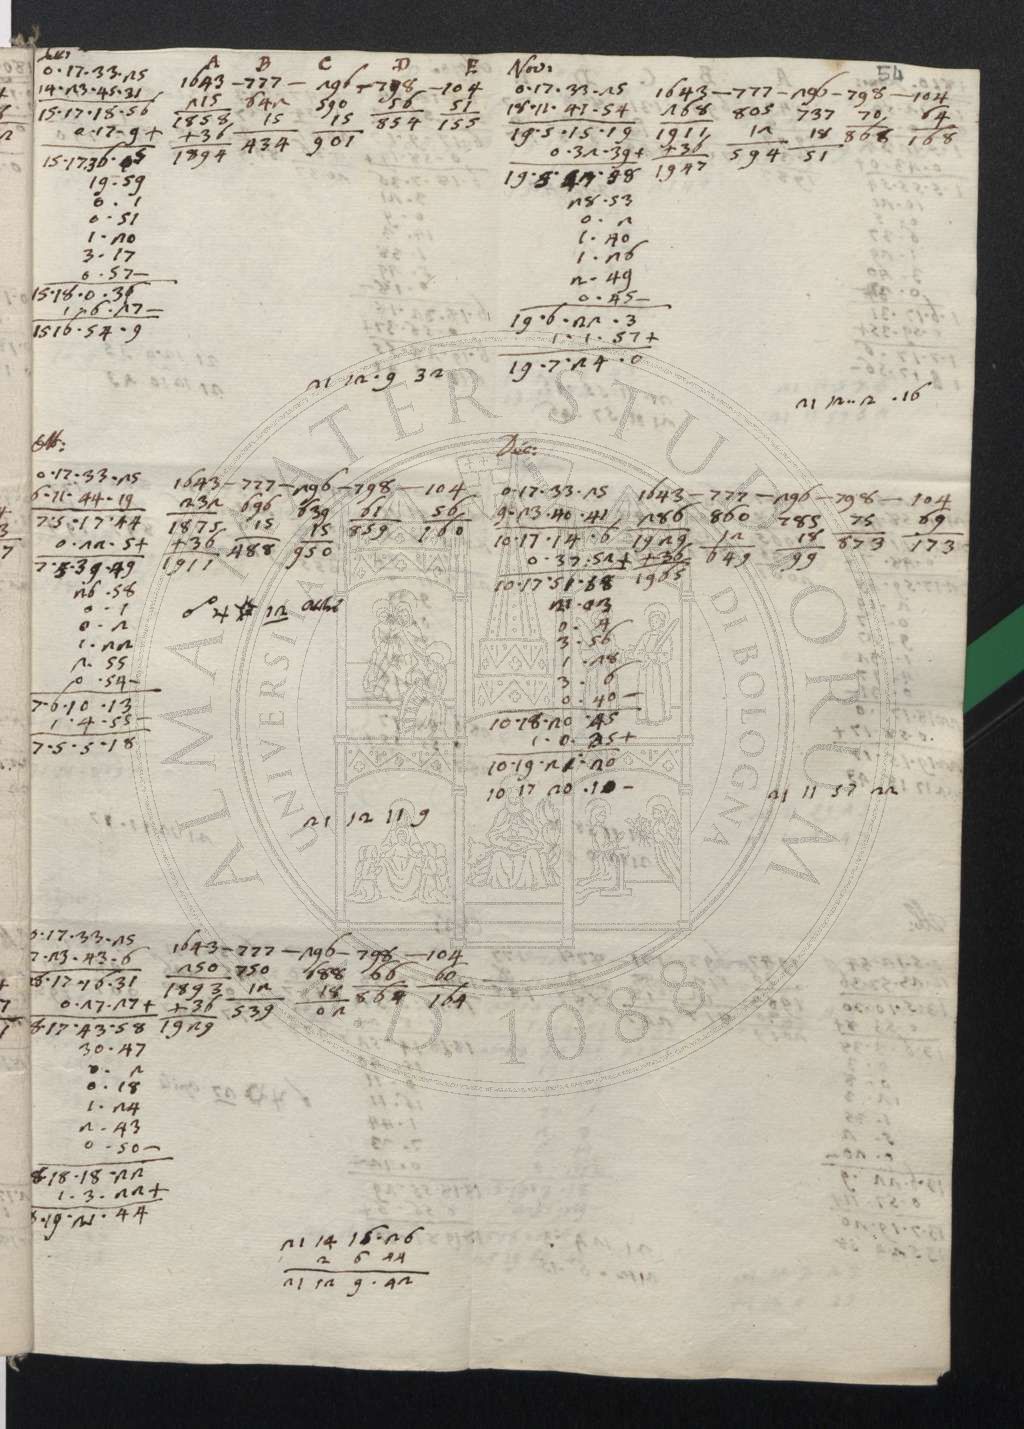 54
A B C D E
0·17·33·25 1643—777—296—798—104
14·23·45·31 215 642 590 56 51
15·17·18·56 1858 15 15 854 155
0·17·9+ +36 434 901
15·17·36·05 1894
19·59
0·1
0·51
1·20
3·17
0·57—
15·18·0·36
1·6·27—
15·16·54·9
21 12·9 32
Nov:
0·17·33·25 1643—777—296—798—104
18·11·41·54 268 805 737 70 64
19·5·15·19 1911 12 18 868 168
0·32·39+ +36 594 51
19·5·47·58 1947
28·53
0·2
1·40
1·26
2·49
0·45—
19·6·22·3
1·1·57+
19·7·24·0
21 12·2·16
Ott:
0·17·33·25 1643—777—296—798—104
6·11·44·19 232 696 639 61 56
7·5·17·44 1875 15 15 859 160
0·22·5+ +36 488 950
7·5·39·49 1911
26·58
0·1
0·2
1·22
2·55
0·54—
7·6·10·13
1·4·55—
7·5·5·18
☍ ♃ 12
21 12 11 9
Dec:
0·17·33·25 1643—777—296—798—104
9·23·40·41 286 860 785 75 69
10·17·14·6 1929 12 18 873 173
0·37·52+ +36 649 99
10·17·51·58 1965
0·4
3·56
1·28
3·6
0·40—
10·18·20·45
1·0·35+
10·19·21·20
10 17 20·10—
21 11 57 22
0·17·33·25 1643—777—296—798—104
7·23·43·6 250 750 688 66 60
8·17·16·31 1893 12 18 864 164
0·27·27+ +36 539 02
8·17·43·58 1929
30·47
0·2
0·18
1·24
2·43
0·50—
8·18·18·22
1·3·22+
8·19·21·44
21 14 16·26
2 6 44
21 12 9·42
ALMA MATER STUDIORUM
UNIVERSITAS DI BOLOGNA
A.D. 1088